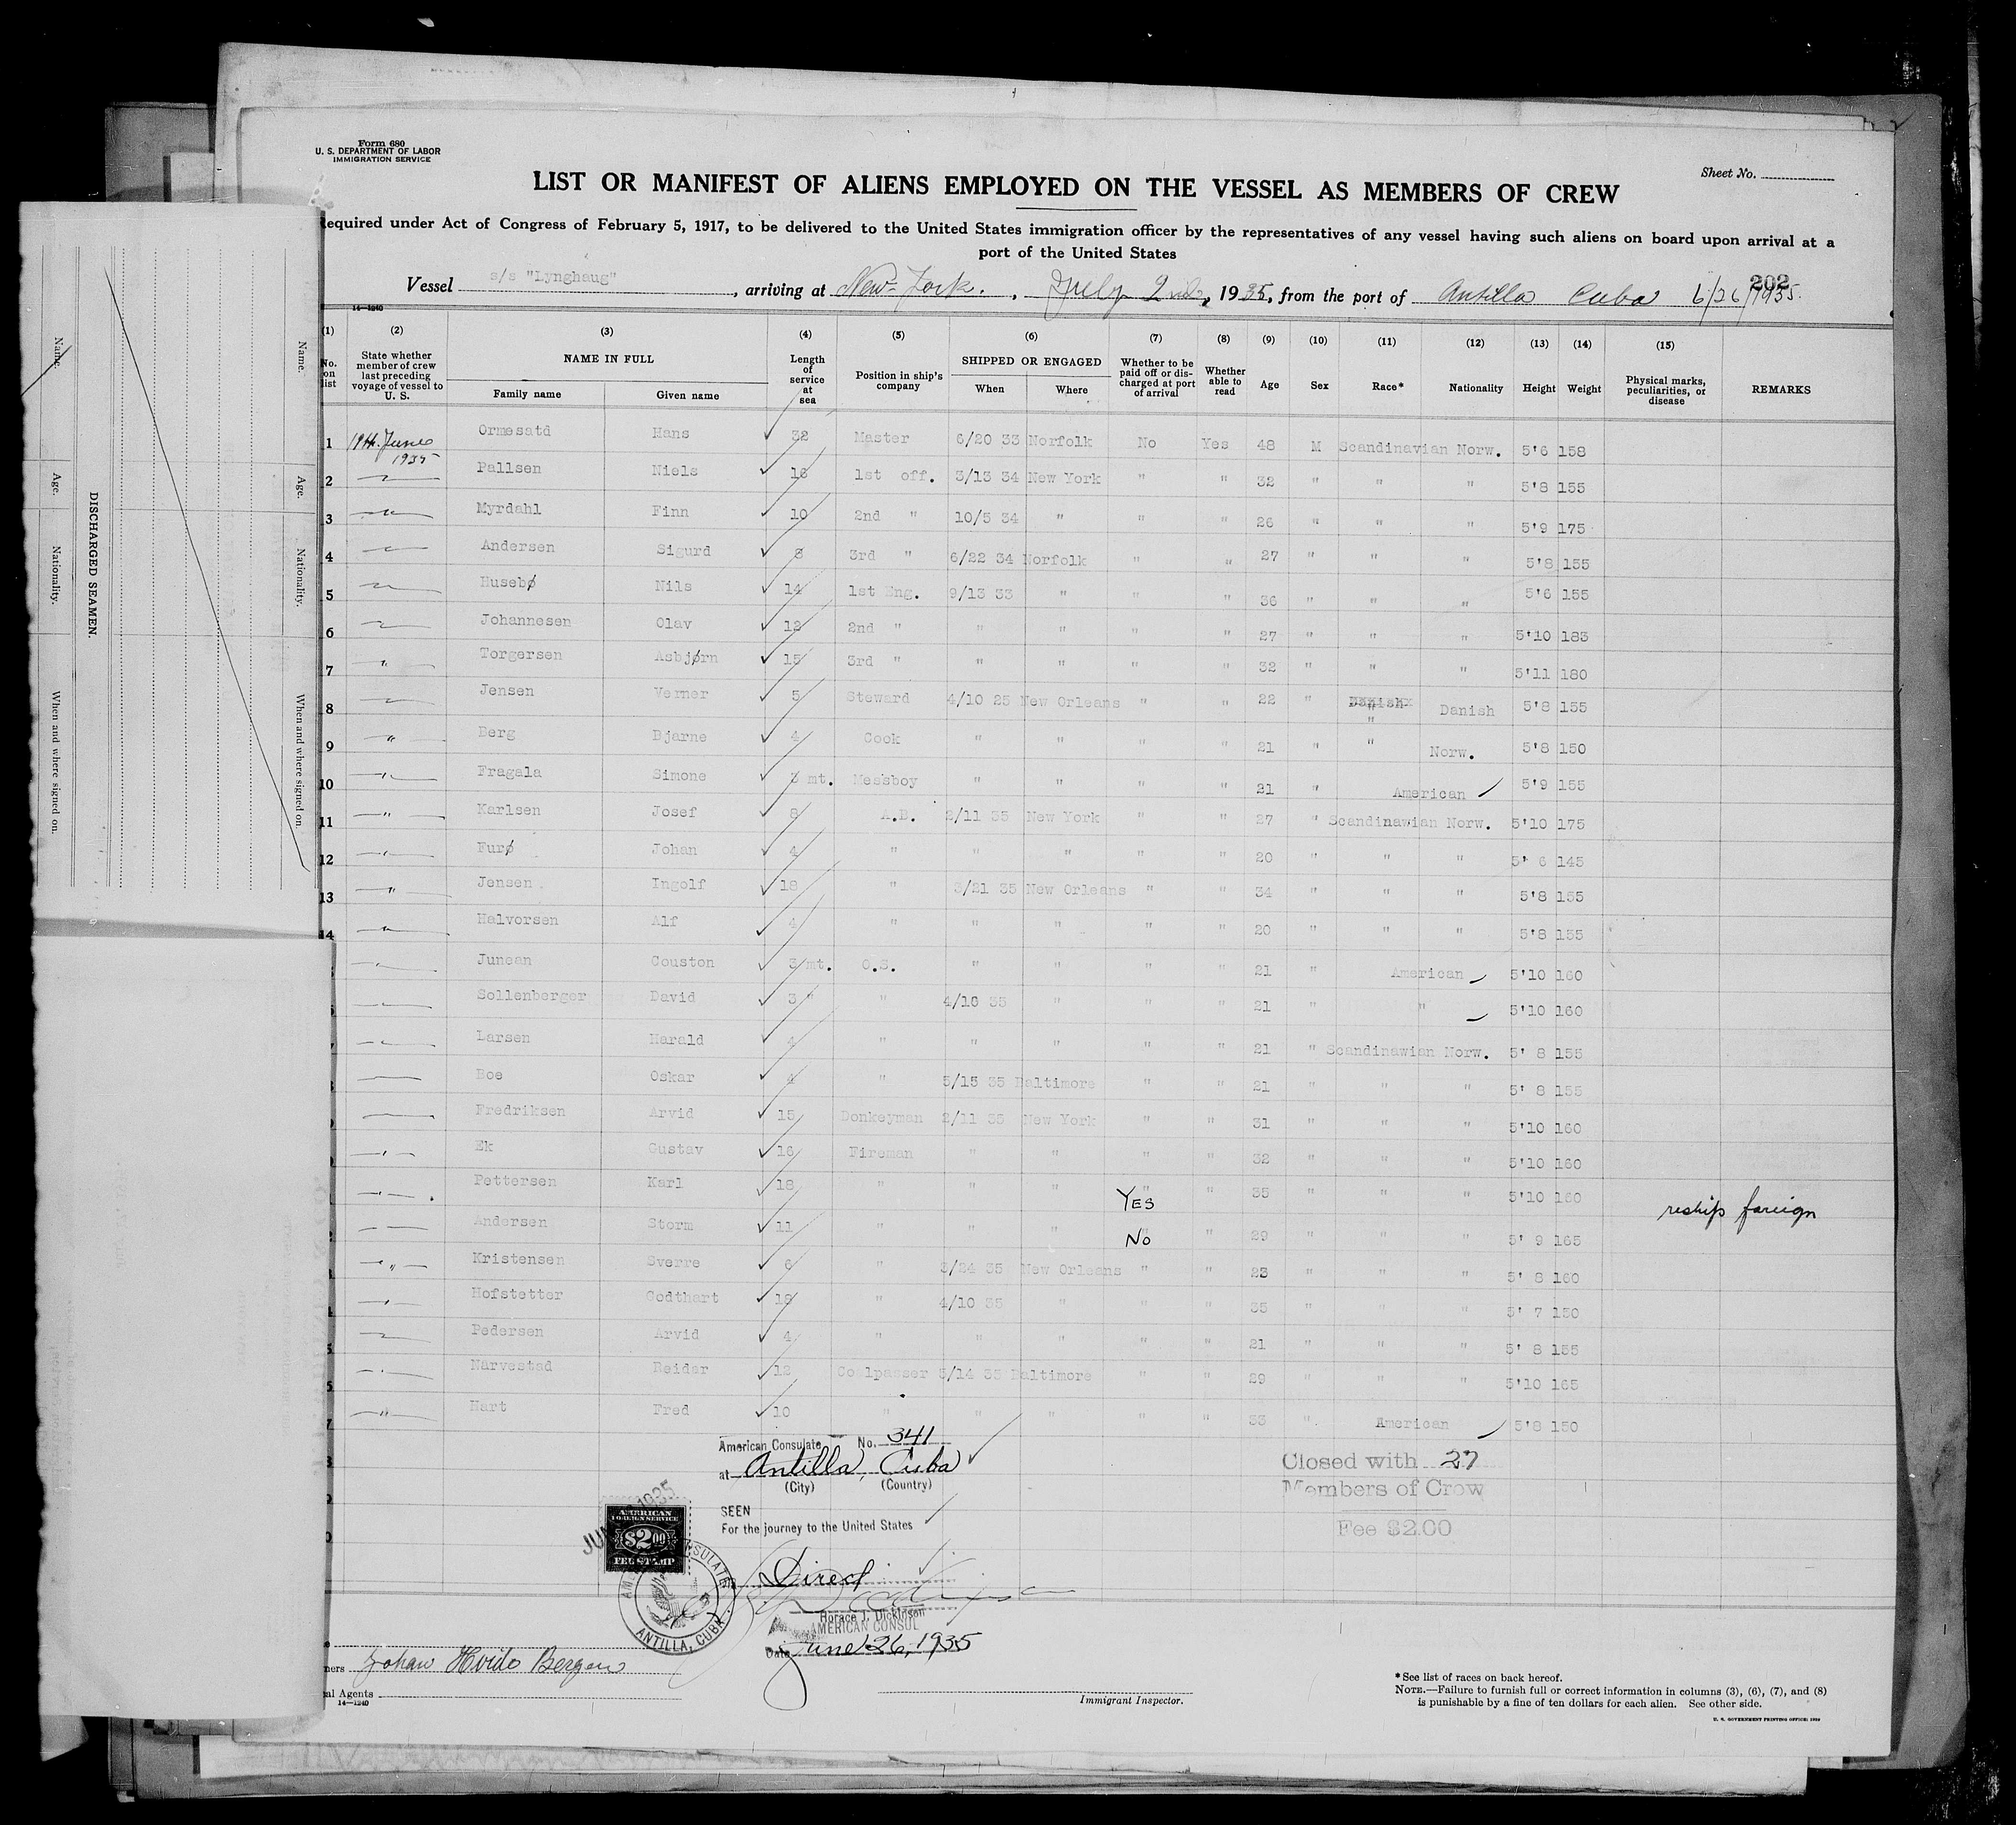 Form 680
U. S. DEPARTMENT OF LABOR
IMMIGRATION SERVICE
Sheet No.
LIST OR MANIFEST OF ALIENS EMPLOYED ON THE VESSEL AS MEMBERS OF CREW
equired under Act of Congress of February 5, 1917, to be delivered to the United States immigration officer by the representatives of any vessel having such aliens on board upon arrival at a
port of the United States
202
Vessel s/s "Lynghaug", arriving at New-York., July 2nd, 1935, from the port of Antilla Cuba 6/26/1935.
14—1240
(1) (2) (3) (4) (5) (6) (7) (8) (9) (10) (11) (12) (13) (14) (15)
No. on list State whether member of crew last preceding voyage of vessel to U. S. NAME IN FULL Length of service at sea Position in ship's company SHIPPED OR ENGAGED Whether to be paid off or discharged at port of arrival Whether able to read Age Sex Race* Nationality Height Weight Physical marks, peculiarities, or disease REMARKS
Family name Given name When Where
1 19th. June 1935 Ormesatd Hans 32 Master 6/20 33 Norfolk No Yes 48 M Scandinavian Norw. 5'6 158
2 " Pallsen Niels 16 1st off. 3/13 34 New York " " 32 " " " 5'8 155
3 " Myrdahl Finn 10 2nd " 10/5 34 " " " 26 " " " 5'9 175
4 " Andersen Sigurd 8 3rd " 6/22 34 Norfolk " " 27 " " " 5'8 155
5 " Husebø Nils 14 1st Eng. 9/13 33 " " " 36 " " " 5'6 155
6 " Johannesen Olav 12 2nd " " " " " 27 " " " 5'10 183
7 " Torgersen Asbjørn 15 3rd " " " " " 32 " " " 5'11 180
8 " Jensen Verner 5 Steward 4/10 25 New Orleans " " 22 " " Danish 5'8 155
9 " Berg Bjarne 4 Cook " " " " 21 " " Norw. 5'8 150
10 " Fragala Simone 3 mt. Messboy " " " " 21 " American 5'9 155
11 " Karlsen Josef 8 A.B. 2/11 35 New York " " 27 " Scandinawian Norw. 5'10 175
12 " Furø Johan 4 " " " " " 20 " " " 5' 6 145
13 " Jensen Ingolf 18 " 3/21 35 New Orleans " " 34 " " " 5'8 155
14 " Halvorsen Alf 4 " " " " " 20 " " " 5'8 155
" Junean Couston 3 mt. O.S. " " " " 21 " American 5'10 160
" Sollenberger David 3 " " 4/10 35 " " " 21 " " 5'10 160
" Larsen Harald 4 " " " " " 21 " Scandinawian Norw. 5' 8 155
Boe Oskar 4 " 5/15 35 Baltimore " " 21 " " " 5' 8 155
Fredriksen Arvid 15 Donkeyman 2/11 35 New York " " 31 " " " 5'10 160
" Ek Gustav 16 Fireman " " " " 32 " " " 5'10 160
" Pettersen Karl 18 " " " YES " 35 " " " 5'10 160 reship foreign
" Andersen Storm 11 " " " No " 29 " " " 5' 9 165
" Kristensen Sverre 6 " 3/24 35 New Orleans " " 23 " " " 5' 8 160
" Hofstetter Godthart 18 " 4/10 35 " " " 35 " " " 5' 7 130
" Pedersen Arvid 4 " " " " " 21 " " " 5' 8 155
" Narvestad Reider 12 Coalpasser 5/14 35 Baltimore " " 29 " " " 5'10 165
" Hart Fred 10 " " " " " 33 " American 5'8 150
American Consulate No. 341
at Antilla, Cuba
(City) (Country)
Closed with 27
Members of Crew
Fee $2.00
SEEN
For the journey to the United States
AMERICAN
FOREIGN SERVICE
$2.00
FEE STAMP
Direct
ANTILLA, CUBA
Horace J. Dickinson
AMERICAN CONSUL
Date June 26, 1935
ners Johan Hvido Bergen
al Agents
14—1240
Immigrant Inspector.
* See list of races on back hereof.
NOTE.—Failure to furnish full or correct information in columns (3), (6), (7), and (8)
is punishable by a fine of ten dollars for each alien. See other side.
U. S. GOVERNMENT PRINTING OFFICE: 1929
DISCHARGED SEAMEN.
Name. Age. Nationality. When and where signed on.
Name. Age. Nationality. When and where signed on.